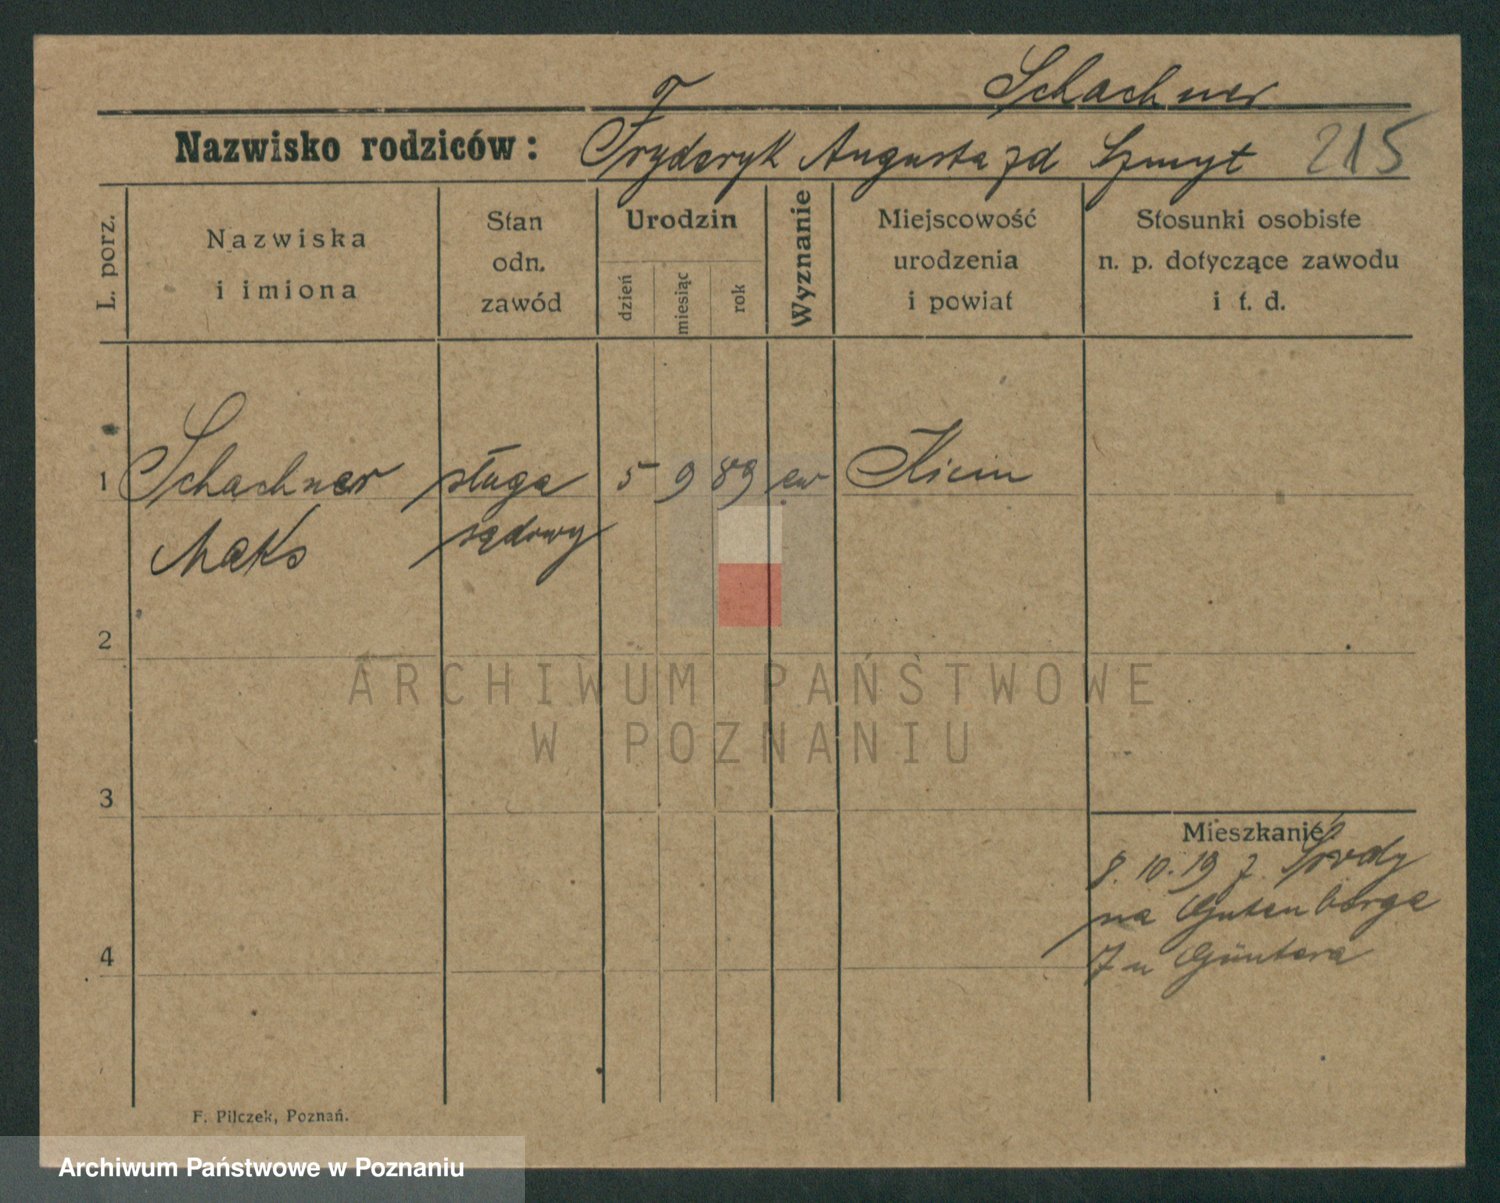 Schachner
Nazwisko rodziców: Fryderyk Augusta zd Szmyt 215
L. porz.
Nazwiska
i imiona
Stan
odn.
zawód
Urodzin
dzień
miesiąc
rok
Wyznanie
Miejscowość
urodzenia
i powiat
Stosunki osobiste
n. p. dotyczące zawodu
i t. d.
1 Schachner sługa 5 9 89 ew Kicin
Maks sądowy
2
ARCHIWUM PAŃSTWOWE
W POZNANIU
3
Mieszkanie:
8. 10. 19 z Środy
na Gutenberga
4
7 u Güntera
F. Pilczek, Poznań.
Archiwum Państwowe w Poznaniu